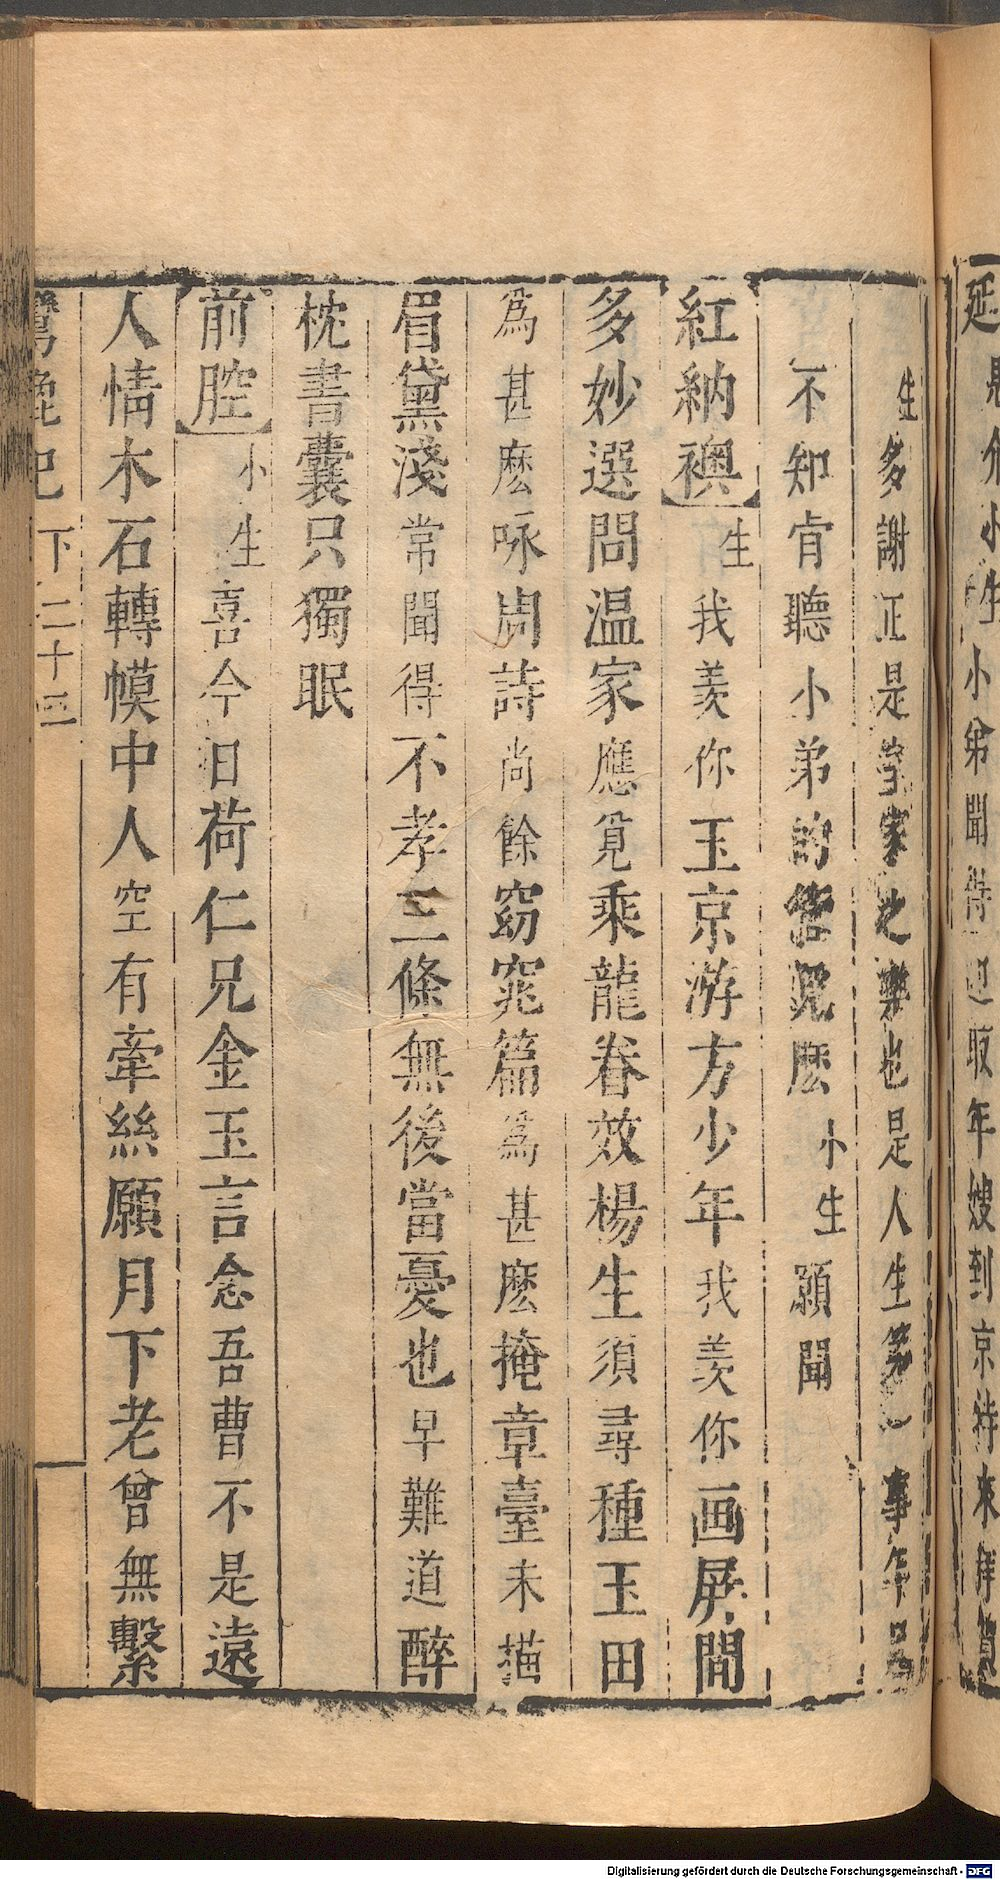 延 恳介小生小弟聞得迎取年嫂到京特來拜賀
生多謝正是室家之樂也是人生第一事年兄
不知肯聽小弟的管見麽小生願聞
紅納襖生我羨你玉京游方少年我羨你画屏間
多妙選問温家應覓乘龍眷效楊生須尋種玉田
爲甚麽咏周詩尚餘窈窕篇爲甚麽掩章臺未描
眉黛淺常聞得不孝三條無後當憂也早難道醉
枕書囊只獨眠
前腔小生喜今日荷仁兄金玉言念吾曹不是遠
人情木石轉幙中人空有牽絲願月下老曾無繫
鸞鎞記 下 二十三
Digitalisierung gefördert durch die Deutsche Forschungsgemeinschaft - DFG